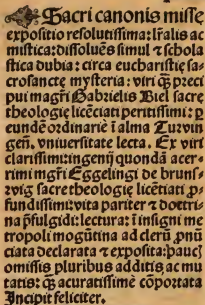 Sacri canonis misse
expositio resolutissima: lr̃alis ac
mistica: dissoluẽs simul ⁊ schola
stica dubia: circa eucharistię sa-
crosanctę mysteria: viri q̃ꝫ preci
pui magr̃i Gabrielis Biel sacrę
theologię licẽciati peritissimi: ꝑ
eundẽ ordinarie ĩ alma Turwin
geñ. vniuersitate lecta. Ex viri
clarissimi: ingenij quondã acer-
rimi mgr̃i Eggelingi de bruns-
wig sacre theologię licẽtiati ꝓ
fundissimi: vita pariter ⁊ doctri-
na p̃fulgidi: lectura: ĩ insigni me
tropoli mogũtina ad clerũ ꝓnũ
ciata declarata ⁊ exposita: paucꝭ
omissis pluribus additis ac mu
tatis: q̃ꝫ acuratissimẽ cõportata
Incipit feliciter.